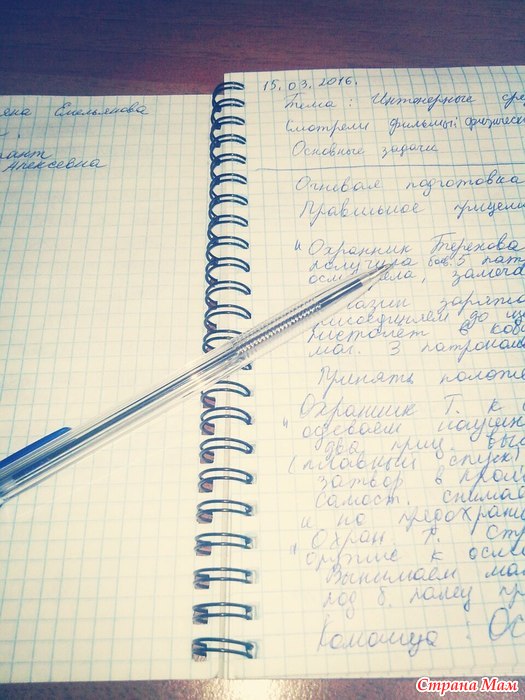 яна Емельянова
рант
Алексеевна
15.03.2016.
Тема: Инженерные сре
Смотрели фильмы: физическ
Основные задачи
Огневая подготовка
Правильное прицели
"Охранник Терехова
получила бое. 5 пат
осмотрела, замеча
газин заряжа
в ко
маг. 3 патронами
Принять положе
Охранник Т. к
" одеваем наушни
два
(плавный спуск)
затвор в
Самост. снима
и на предохрани
Охран. Т. Стр
" оружие к осмо
Вынимаем ма
под б. палец пр
Команда: Ос
Страна Мам